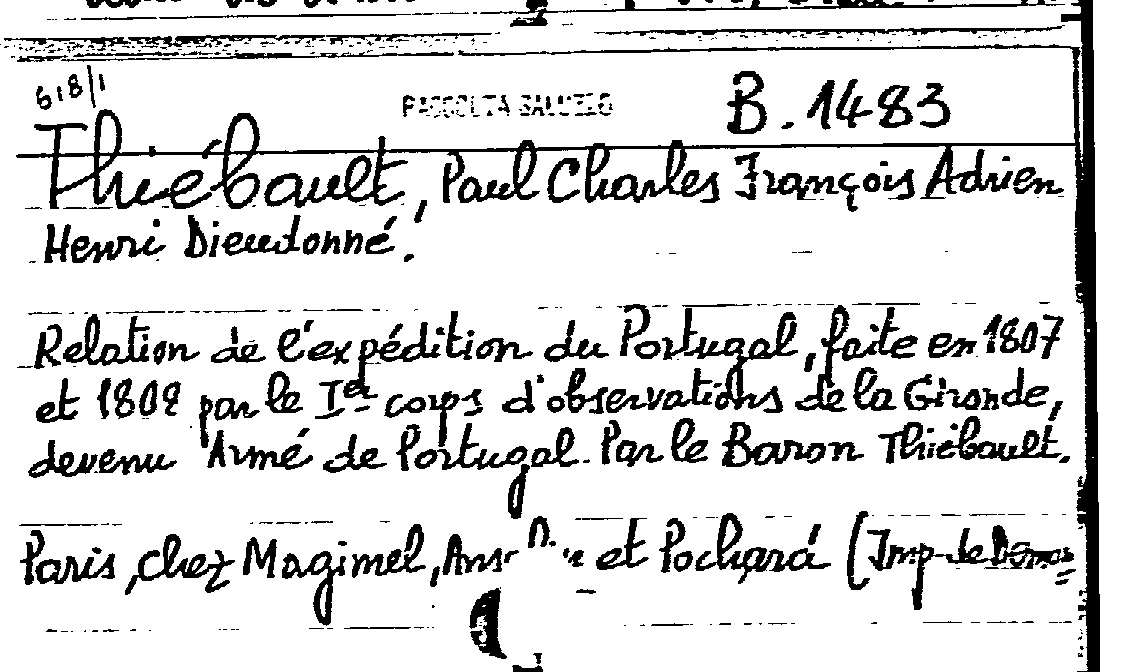 618/1
RACCOLTA SALUZZO
B.1483
Thiébault, Paul Charles François Adrien
Henri Dieudonné.
Relation de l'expédition du Portugal, faite en 1807
et 1808 par le Ier corps d'observations de la Gironde,
devenu Armé de Portugal. Par le Baron Thiébault.
Paris, chez Magimel, et Pochard (Imp. de Demon=